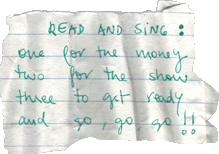 READ AND SING :
one for the money
two for the show
three to get ready
and go, go, go !!